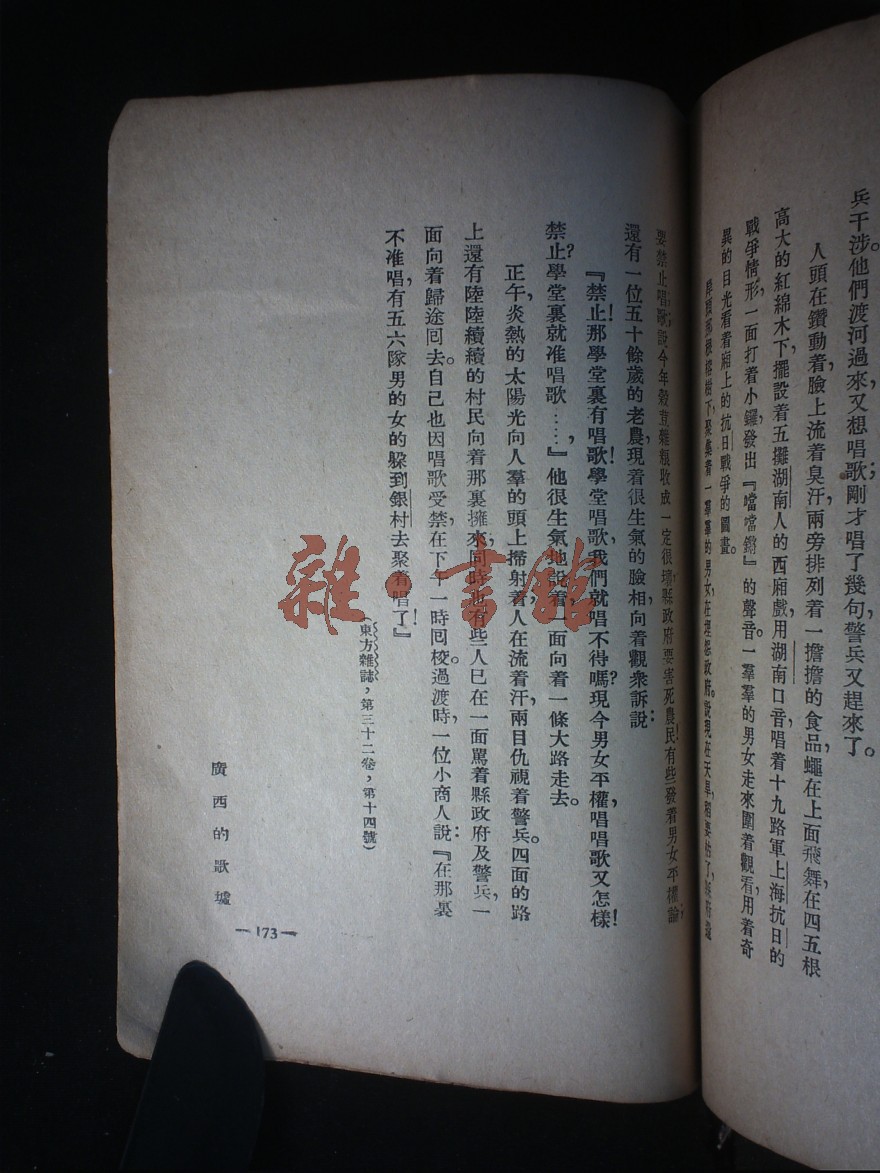 兵干涉。他們渡河過來，又想唱歌；剛才唱了幾句，警兵又趕來了。
人頭在鑽動着，臉上流着臭汗，兩旁排列着一擔擔的食品，蠅在上面飛舞，在四五根
高大的紅綿木下，擺設着五攤湖南人的西廂戲，用湖南口音，唱着十九路軍上海抗日的
戰爭情形，一面打着小鑼，發出『噹噹鏘』的聲音。一羣羣的男女走來圍着觀看，用着奇
異的目光看着廂上的抗日戰爭的圖畫。
樹下聚集着一羣羣的男女，在埋怨政府。說現在天旱，
要禁止唱歌，說今年穀荳雜糧收成一定很壞，縣政府要害死農民！有些發着男女平權論；
還有一位五十餘歲的老農，現着很生氣的臉相，向着觀衆訴說：
『禁止！那學堂裏有唱歌！學堂唱歌，我們就唱不得嗎？現今男女平權，唱唱歌又怎樣！
禁止？學堂裏就准唱歌，……』他很生氣地說着，一面向着一條大路走去。
正午，炎熱的太陽光向人羣的頭上掃射着，人在流着汗，兩目仇視着警兵。四面的路
上還有陸陸續續的村民向着那裏擁來，同時也有些人已在一面罵着縣政府及警兵，一
面向着歸途囘去。自己也因唱歌受禁，在下午一時囘校。過渡時，一位小商人說：『在那裏
不准唱，有五六隊男的女的躱到銀村去聚着唱了！』
（東方雜誌，第三十二卷，第十四號）
廣西的歌墟
—173—
雜·書館